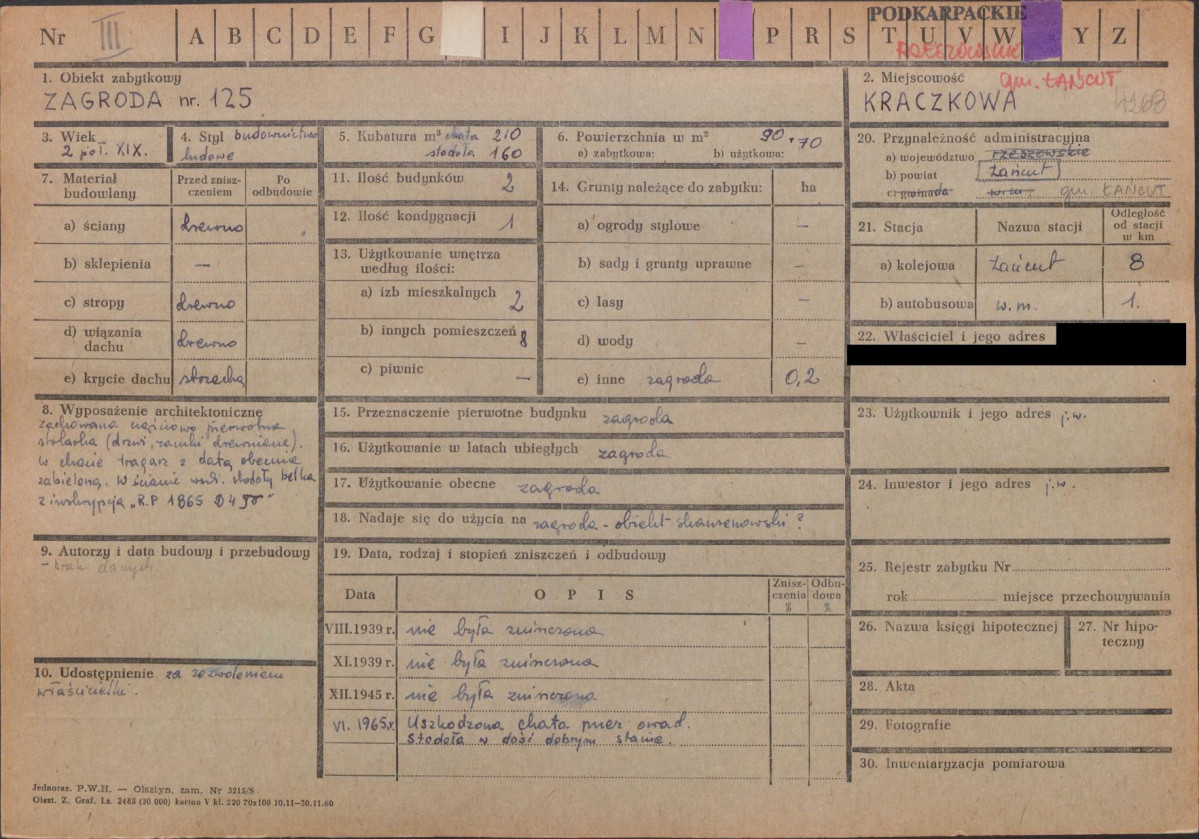 PODKARPACKIE
Nr III A B C D E F G I J K L M N P R S T U V W Y Z
RZESZOWSKIE
gm. ŁAŃCUT
1. Obiekt zabytkowy
ZAGRODA nr. 125
2. Miejscowość
KRACZKOWA
4268
3. Wiek
2 poł. XIX.
4. Styl budownictwo
ludowe
5. Kubatura m³ chata 210
stodoła 160
6. Powierzchnia w m² 90 + 70
a) zabytkowa: b) użytkowa:
7. Materiał budowlany
Przed znisz-
czeniem
Po
odbudowie
a) ściany drewno
b) sklepienia —
c) stropy drewno
d) wiązania
dachu drewno
e) krycie dachu strzecha
8. Wyposażenie architektoniczne
Zachowana częściowo pierwotna
stolarka (drzwi, zamki drewniane).
w chacie tragarz z datą obecnie
zabieloną. W ścianie stodoły belka
z inskrypcją „R.P 1865 D 4
9. Autorzy i data budowy i przebudowy
- brak danych.
10. Udostępnienie za zezwoleniem
właścicielki.
11. Ilość budynków 2
12. Ilość kondygnacji 1
13. Użytkowanie wnętrza
według ilości:
a) izb mieszkalnych 2
b) innych pomieszczeń 8
c) piwnic —
14. Grunty należące do zabytku: ha
a) ogrody stylowe —
b) sady i grunty uprawne —
c) lasy —
d) wody —
e) inne zagroda 0,2
15. Przeznaczenie pierwotne budynku zagroda
16. Użytkowanie w latach ubiegłych zagroda
17. Użytkowanie obecne zagroda
18. Nadaje się do użycia na zagroda - obiekt skansenowski?
19. Data, rodzaj i stopień zniszczeń i odbudowy
Data OPIS Znisz-
czenia
% Odbu-
dowa
%
VIII.1939 r. nie była zniszczona
XI.1939 r. nie była zniszczona
XII.1945 r. nie była zniszczona
VI. 1965.r. Uszkodzona chata przez owad.
Stodoła w dość dobrym stanie.
20. Przynależność administracyjna
a) województwo rzeszowskie
b) powiat Łańcut
c) gromada gm. ŁAŃCUT
21. Stacja Nazwa stacji Odległość
od stacji
w km
a) kolejowa Łańcut 8
b) autobusowa w.m. 1.
22. Właściciel i jego adres
23. Użytkownik i jego adres j.w.
24. Inwestor i jego adres j.w.
25. Rejestr zabytku Nr
rok miejsce przechowywania
26. Nazwa księgi hipotecznej
27. Nr hipo-
teczny
28. Akta
29. Fotografie
30. Inwentaryzacja pomiarowa
Jednoraz. P.W.H. — Olsztyn, zam. Nr 3215/S
Olszt. Z. Graf. Lz. 2485 (30 000) karton V kl. 220 70x100 10.11—30.11.60